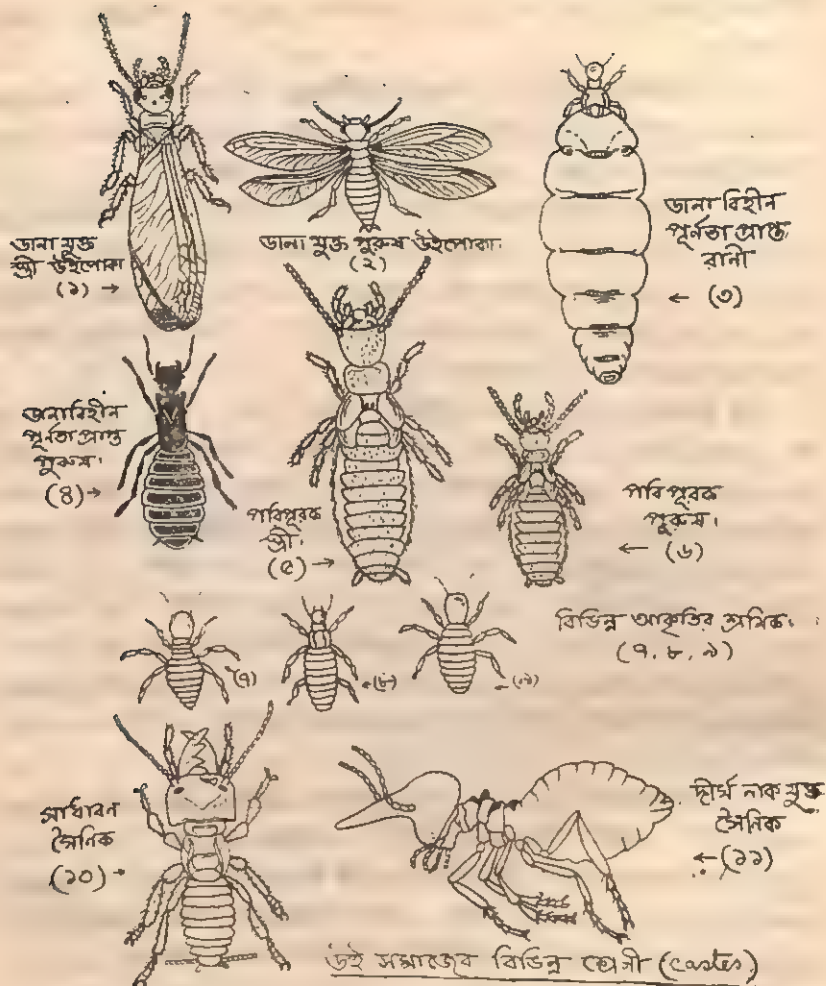 ডানা যুক্ত
স্ত্রী উইপোকা
(১) →
ডানা যুক্ত পুরুষ উইপোকা।
(২)
ডানা বিহীন
পূর্নতা প্রাপ্ত
রানী
← (৩)
ডানাবিহীন
পূর্নতা প্রাপ্ত
পুরুষ।
(৪)→
পরিপূরক
স্ত্রী।
(৫) →
পরিপূরক
পুরুষ।
← (৬)
বিভিন্ন আকৃতির শ্রমিক।
(৭, ৮, ৯)
(৭)
(৮)
(৯)
সাধারন
সৈনিক
(১০) →
দীর্ঘ নাক যুক্ত
সৈনিক
←(১১)
উই সমাজের বিভিন্ন শ্রেনী (castes)